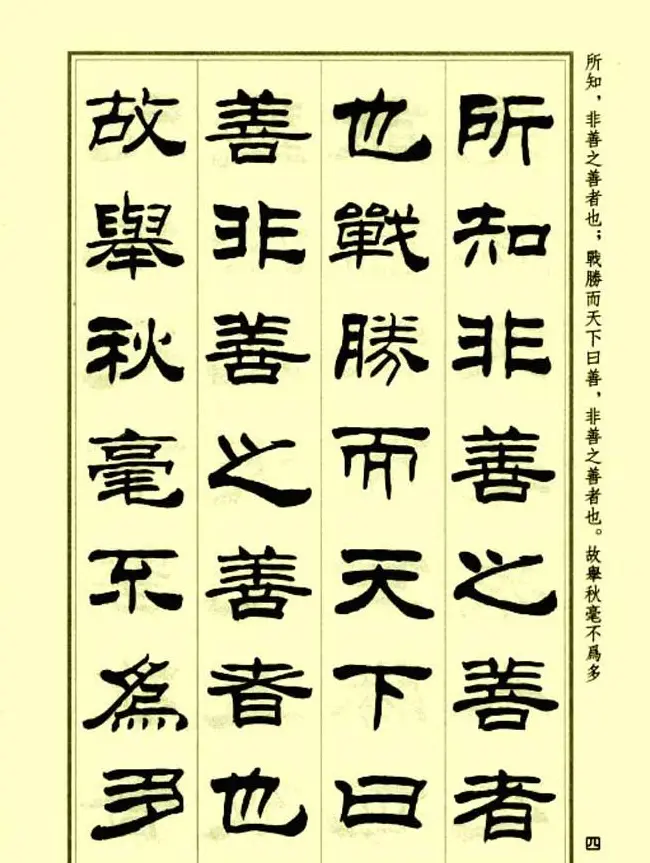 所知，非善之善者也；戰勝而天下曰善，非善之善者也。故舉秋毫不爲多
所知非善之善者
也戰勝而天下曰
善非善之善者也
故舉秋毫不爲多
四